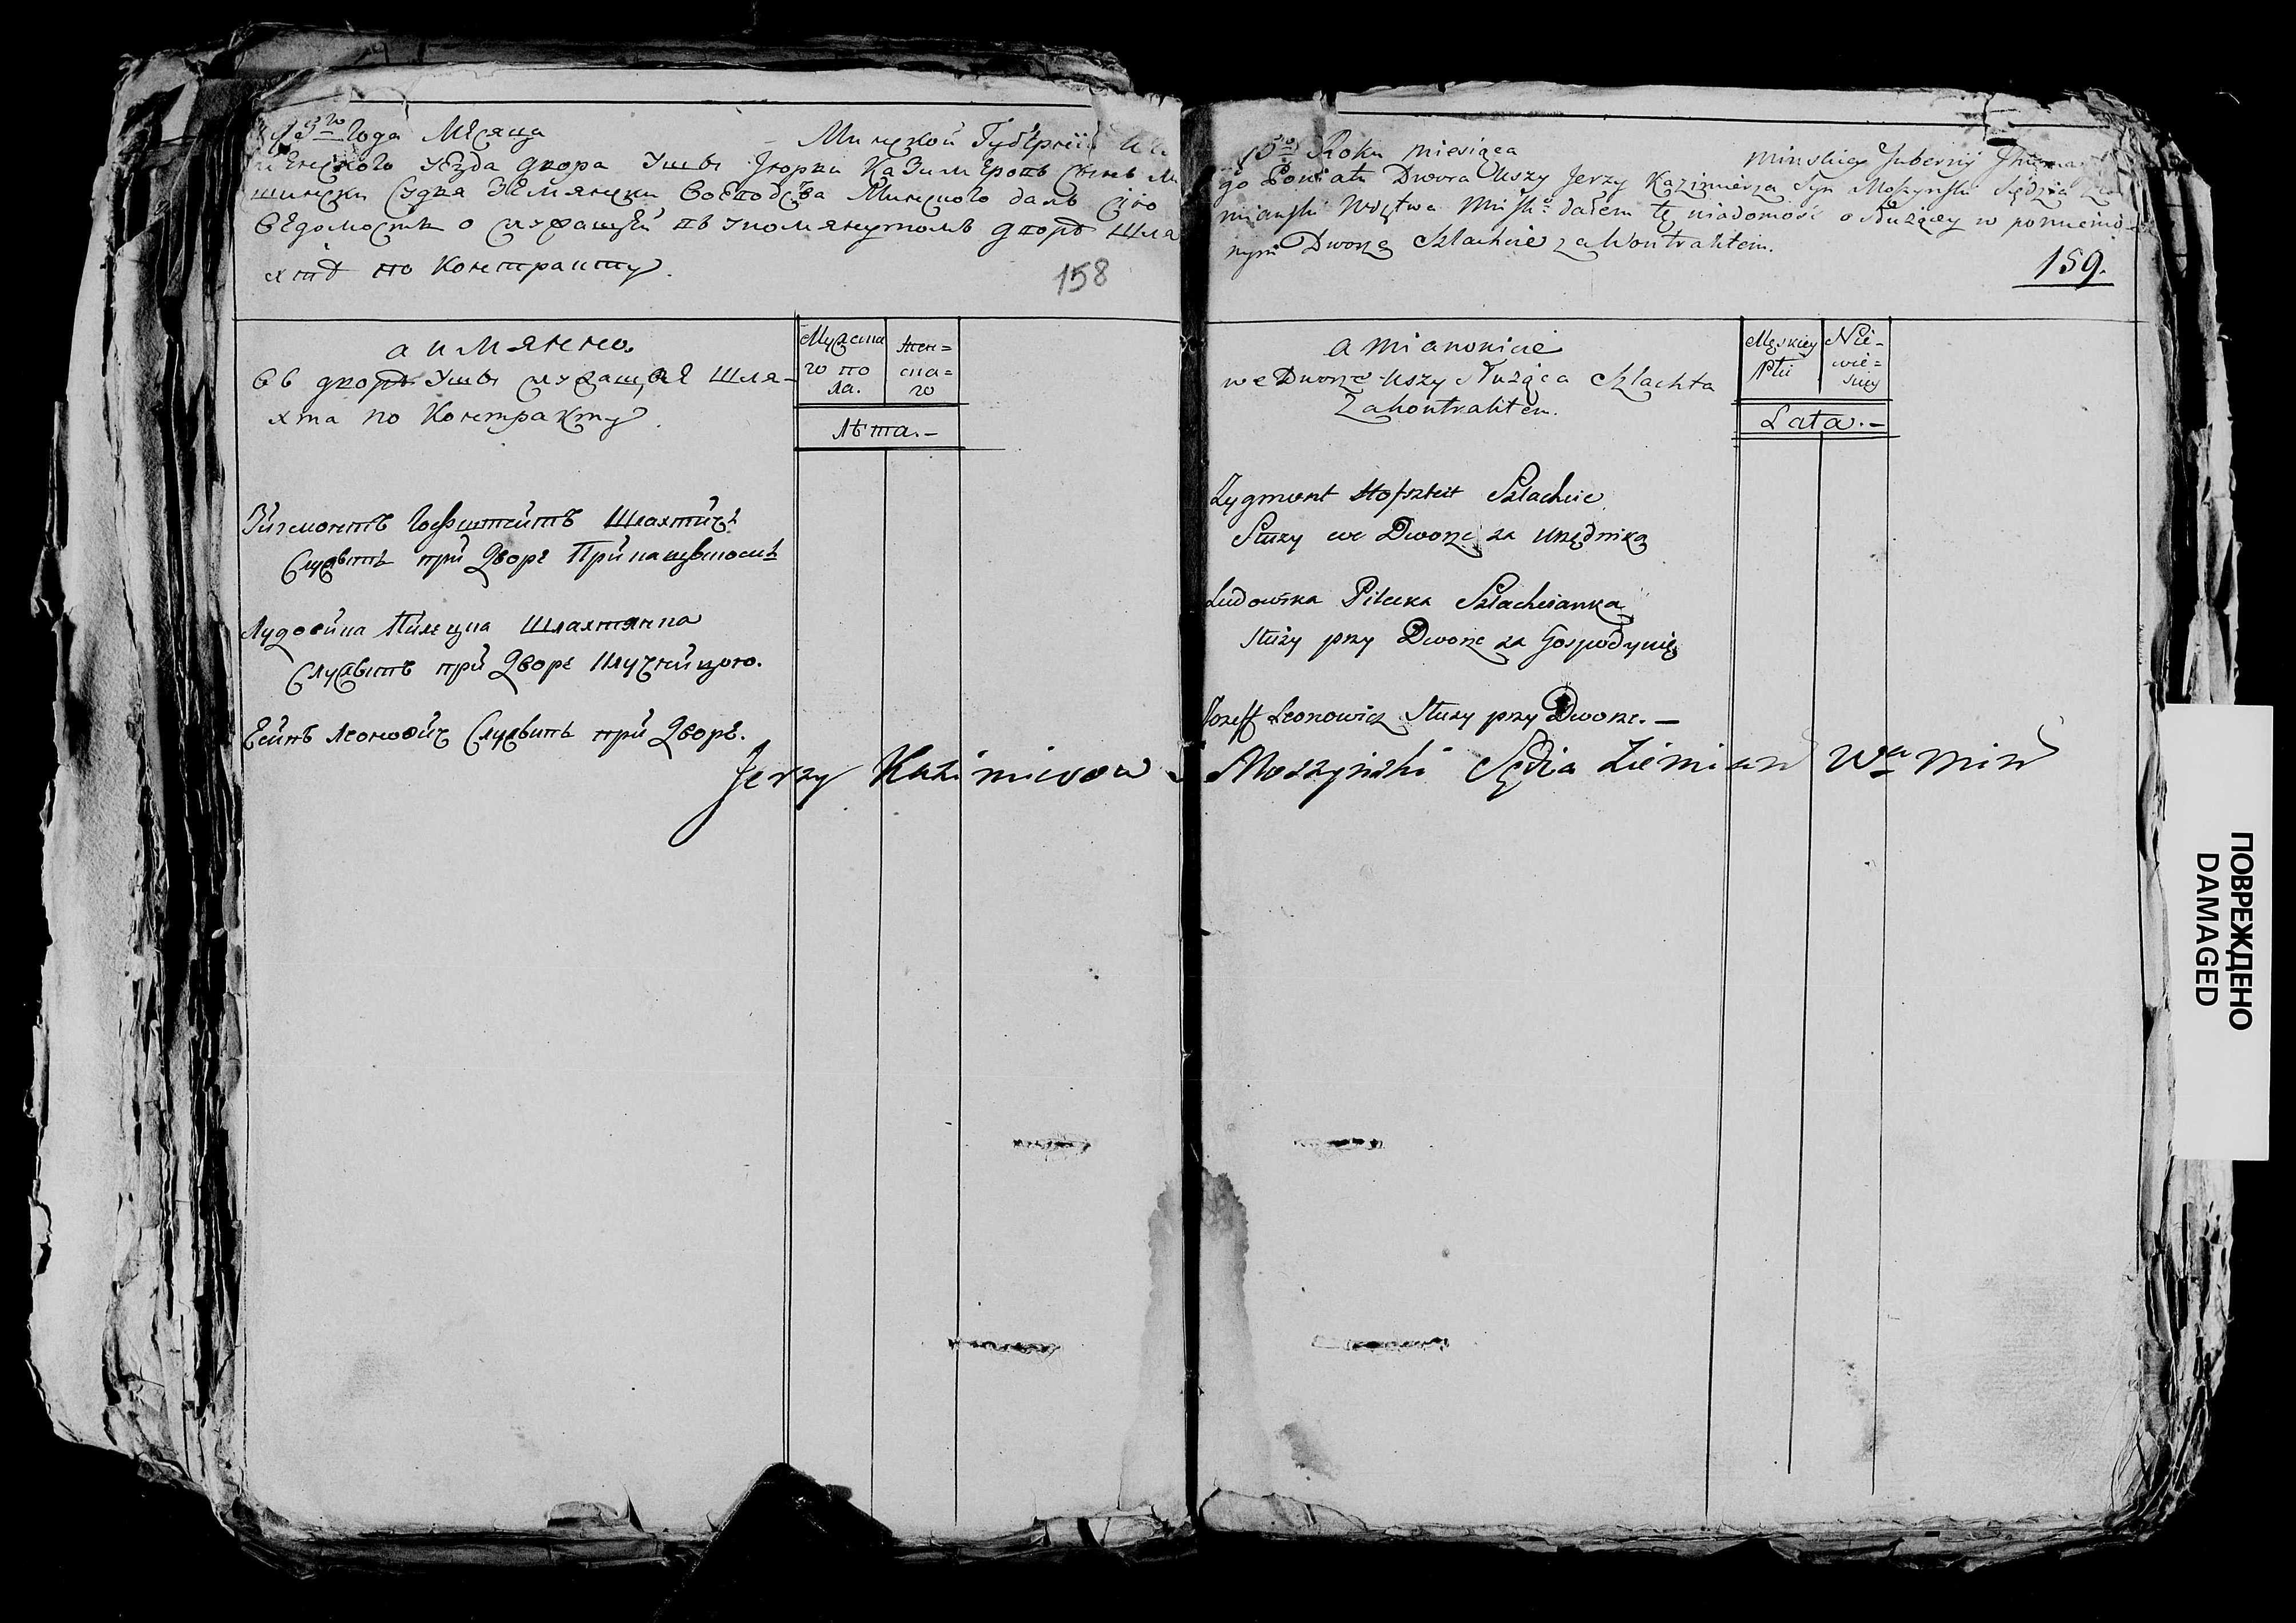 года Месяца Минской Губернїи
уезда двора Уши Іюрки Казимеровъ сынъ
Судяа Земянски Воеводсва Минского далъ сію
ведомость о служащей въ упомянутомъ дворѣ шля
хтѣ по Контракту.
158
а имянно.
въ дворѣ Уши служащая шля-
хта по Контракту.
Мужска
го по
ла.
жен=
ска=
го
лѣта.-
Зигмонтъ Гофштейтъ Шляхтичъ
Служытъ при Дворе
Лудовика Пилецка Шляхтянка
Служытъ при Дворе Ключницою.
Есипъ Леоновичъ Служытъ при Дворе.
Jerzy Kazimierow
15го Roku miesiąca Minskiey Guberny
go Powiatu Dwora Uszy Jerzy Kazimierza Syn Moszynski Sędzia Zie
mianski Wdztwa Minsko dałem tę wiadomość o służącey w pomienio
nym Dworzę Szlachcie za Kontraktem.
159.
a mianowicie
we Dworze Uszy służąca Szlachta
Zakontraktem.
Męskiey
Płci
Nie-
wie=
skiey
Lata.-
Zygmont Hofszteit Szlachcic
Służy we Dworze za urzędnika
Ludowika Pilecka Szlachcianka
służy przy Dworze za Gospodynię
Jozeff Leonowicz Służy przy Dworze. —
Moszynski Sędzia Ziemian Wa Min
ПОВРЕЖДЕНО
DAMAGED